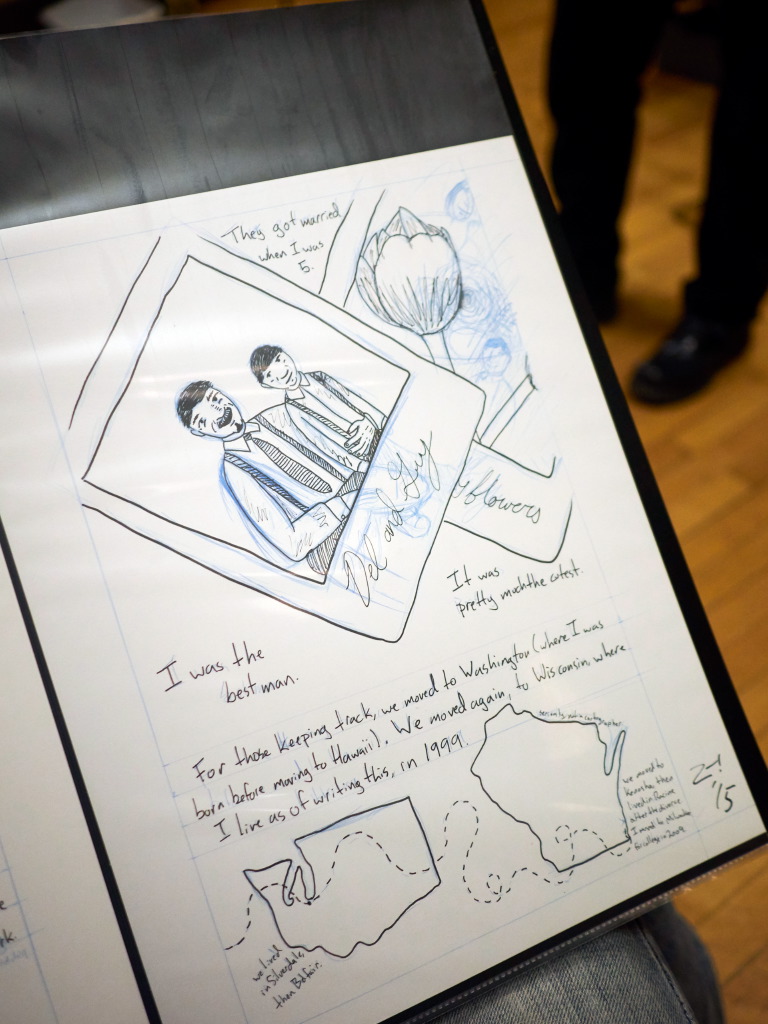 They got married
when I was
5.
Del and Guy
flowers
It was
pretty much the cutest.
I was the
best man.
For those keeping track, we moved to Washington (where I was
born before moving to Hawaii). We moved again, to Wisconsin, where
I live as of writing this, in 1999.
we moved to
Kenosha, then
lived in Racine
after the divorce
I moved to Milwaukee
for college in 2009.
'15
we lived
in Silverdale,
then Belfair.